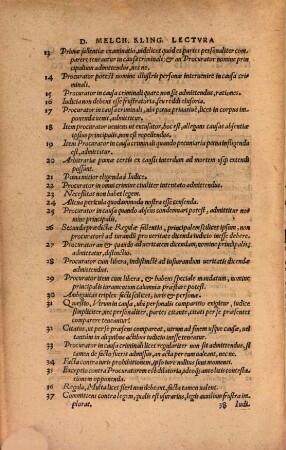 D. MELCH. KLING. LECTVRA
13 Primæ sullentiæ examinatio, videlicet quòd ex partes personaliter comparere teneantur in causa criminali: & an Procurator nomine principalium admittendus, nec ne.
14 Procurator potest nomine illustris personæ interuenire in causa criminali.
15 Procurator in causa criminali quare non sit admittendus, rationes.
16 Iudicia non debent esse frustratoria, seu reddi elusoria.
17 Procurator in causa criminali, ubi pœna priuatiuè, licet in corpus imponenda uenit, admittitur.
18 Item procurator ueniens ut excusator, hoc est, allegans causas absentiæ ipsius principalis, non est repellendus.
19 Item Procurator in causa criminali quando pecuniaria pœna infligenda est, admittitur.
20 Arbitrariæ pœnæ certis ex causis interdum ad mortem usque extendi possunt.
21 Pœna mitior eligenda à Iudice.
22 Procurator in omni crimine ciuiliter intentato admittendus.
23 Necessitas non habet legem.
24 Aliena pericula quodammodo nostra esse censenda.
25 Procurator in causa quando absens condemnari potest, admittitur nomine principalis.
26 Secunda prædictæ Regulæ fallentia, principalem scilicet ipsum, non procuratorem ad iurandū pro ueritate dicenda iudicio inesse debere.
27 Procurator an & quando ad ueritatem dicendam, nomine principalis, admittatur, distinctio.
28 Procurator cum libera, indistinctè ad iusiurandum ueritatis dicendæ admittendus.
29 Procurator item cum libera, & habens speciale mandatum, nomine principalis iuramentum calumniæ præstare potest.
30 Ambiguitas triplex: facti scilicet, iuris & personæ.
31 Quæstio, Vtrum in causa, ubi personalis comparitio exigitur, iudice simpliciter, nec personaliter, partes citante, citati per se præsentes comparere teneantur.
32 Citatus, ut per se præsens compareat, utrum ad finem usque causæ, uel tantùm in aliquibus actibus iudicio inesse teneatur.
33 Procurator in causa criminali licet regulariter non sit admittendus, si tamen de facto fuerit admissus, an acta per eum ualeant, nec ne.
34 Facta contra iuris prohibitionem, ipso iure nullius sunt momenti.
35 Exceptio contra Procuratorem est dilatoria, ideoq́; ante litis contestationem opponenda.
36 Regula, Multa licet fieri non debent, facta tamen ualent.
37 Committens contra legem, qualis est usurarius, legis auxilium frustra implorat.
38 Iudi.